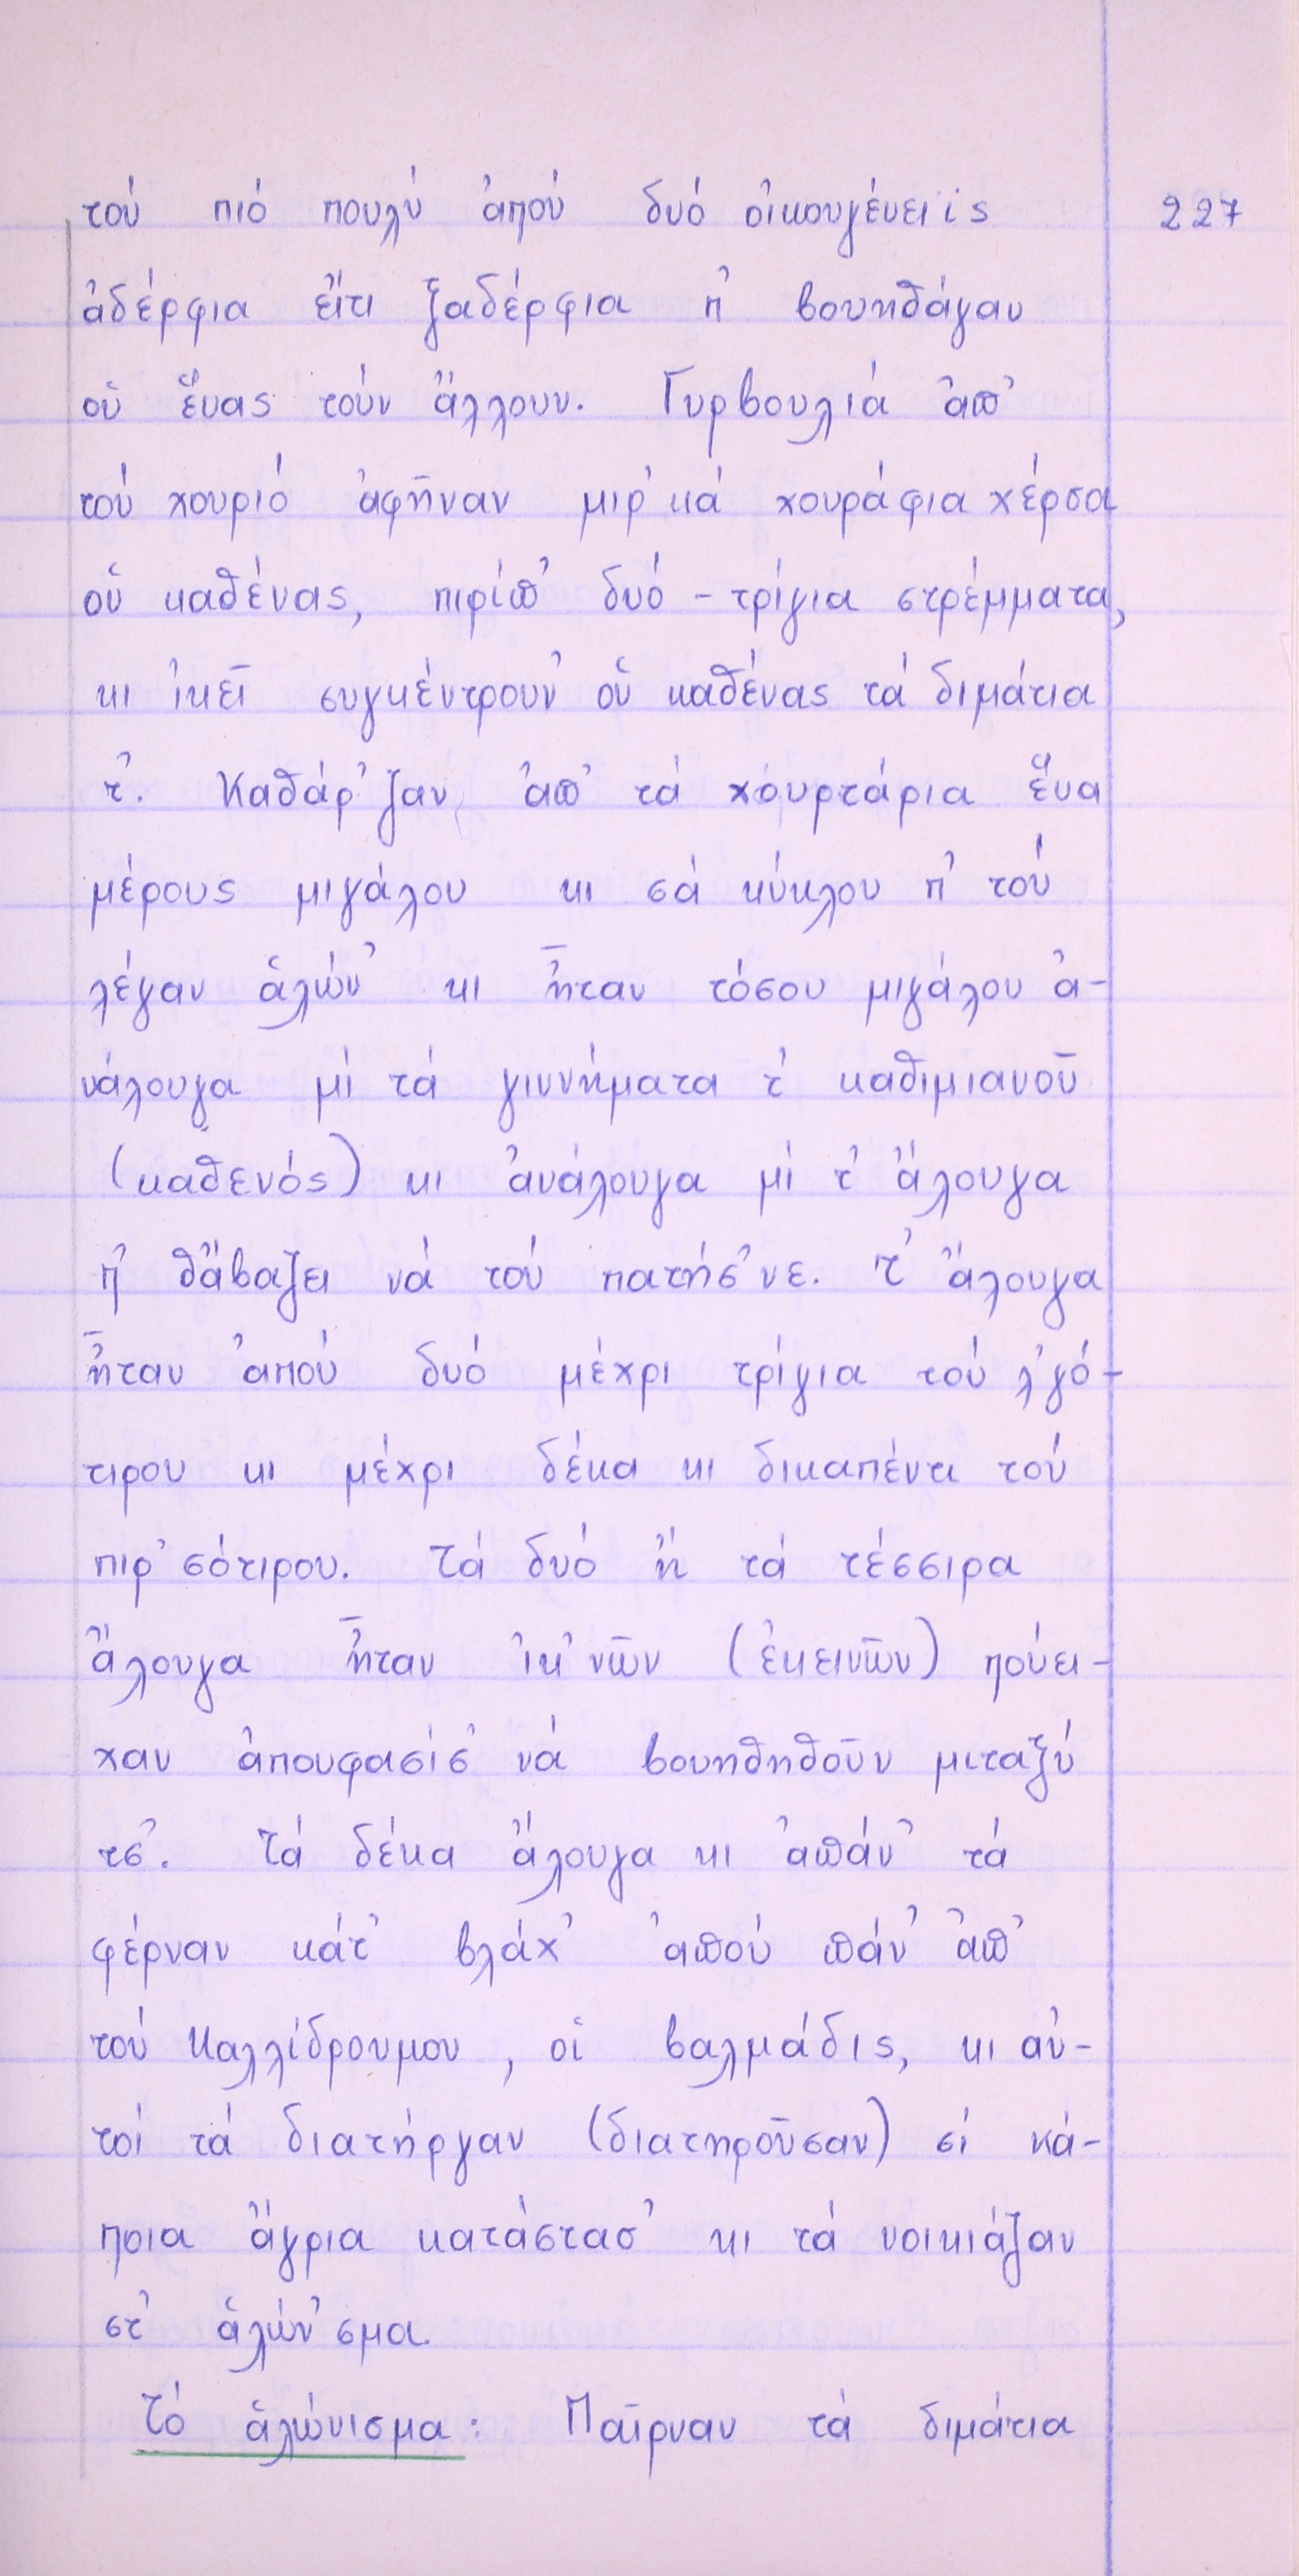 τού πιό πουλύ ἀπού δυό οἰκουγένειις 227
ἀδέρφια εἴτι ξαδέρφια π' βουηθάγαν
οὑ ἕνας τούν ἄλλουν. Γυρβουλιά ἀπ'
τού χουριό ἀφῆναν μιρ'κά χουράφια χέρσα
οὑ καθένας, πιρίπ' δυό - τρίγια στρέμματα,
κι ἰκεῖ συγκέντρουν' οὑ καθένας τά διμάτια
τ'. Καθάρ'ζαν ἀπ' τά χουρτάρια ἕνα
μέρους μιγάλου κι σά κύκλου π' τού
λέγαν ἁλών' κι ἦταν τόσου μιγάλου ἀ-
νάλουγα μί τά γιννήματα τ' καθιμιανοῦ
(καθενός) κι ἀνάλουγα μί τ' ἄλουγα
π' θἄβαζει νά τού πατήσ'νε. Τ' ἄλουγα
ἦταν ἀπού δυό μέχρι τρίγια τού λ'γό-
τιρου κι μέχρι δέκα κι δικαπέντι τού
πιρ'σότιρου. Τά δυό ἤ τά τέσσιρα
ἄλουγα ἦταν ἰκ'νῶν (ἐκεινῶν) πούει-
χαν ἀπουφασίσ' νά βουηθηθοῦν μιταξύ
τσ'. Τά δέκα ἄλουγα κι ἀπάν' τά
φέρναν κάτ' βλάχ' ἀπού πάν' ἀπ'
τού Καλλίδρουμου, οἱ βαλμάδις, κι αὐ-
τοί τά διατήργαν (διατηροῦσαν) σί κά-
ποια ἄγρια κατάστασ' κι τά νοικιάζαν
στ' ἁλών'σμα.
Τό ἁλώνισμα: Παῖρναν τά διμάτια